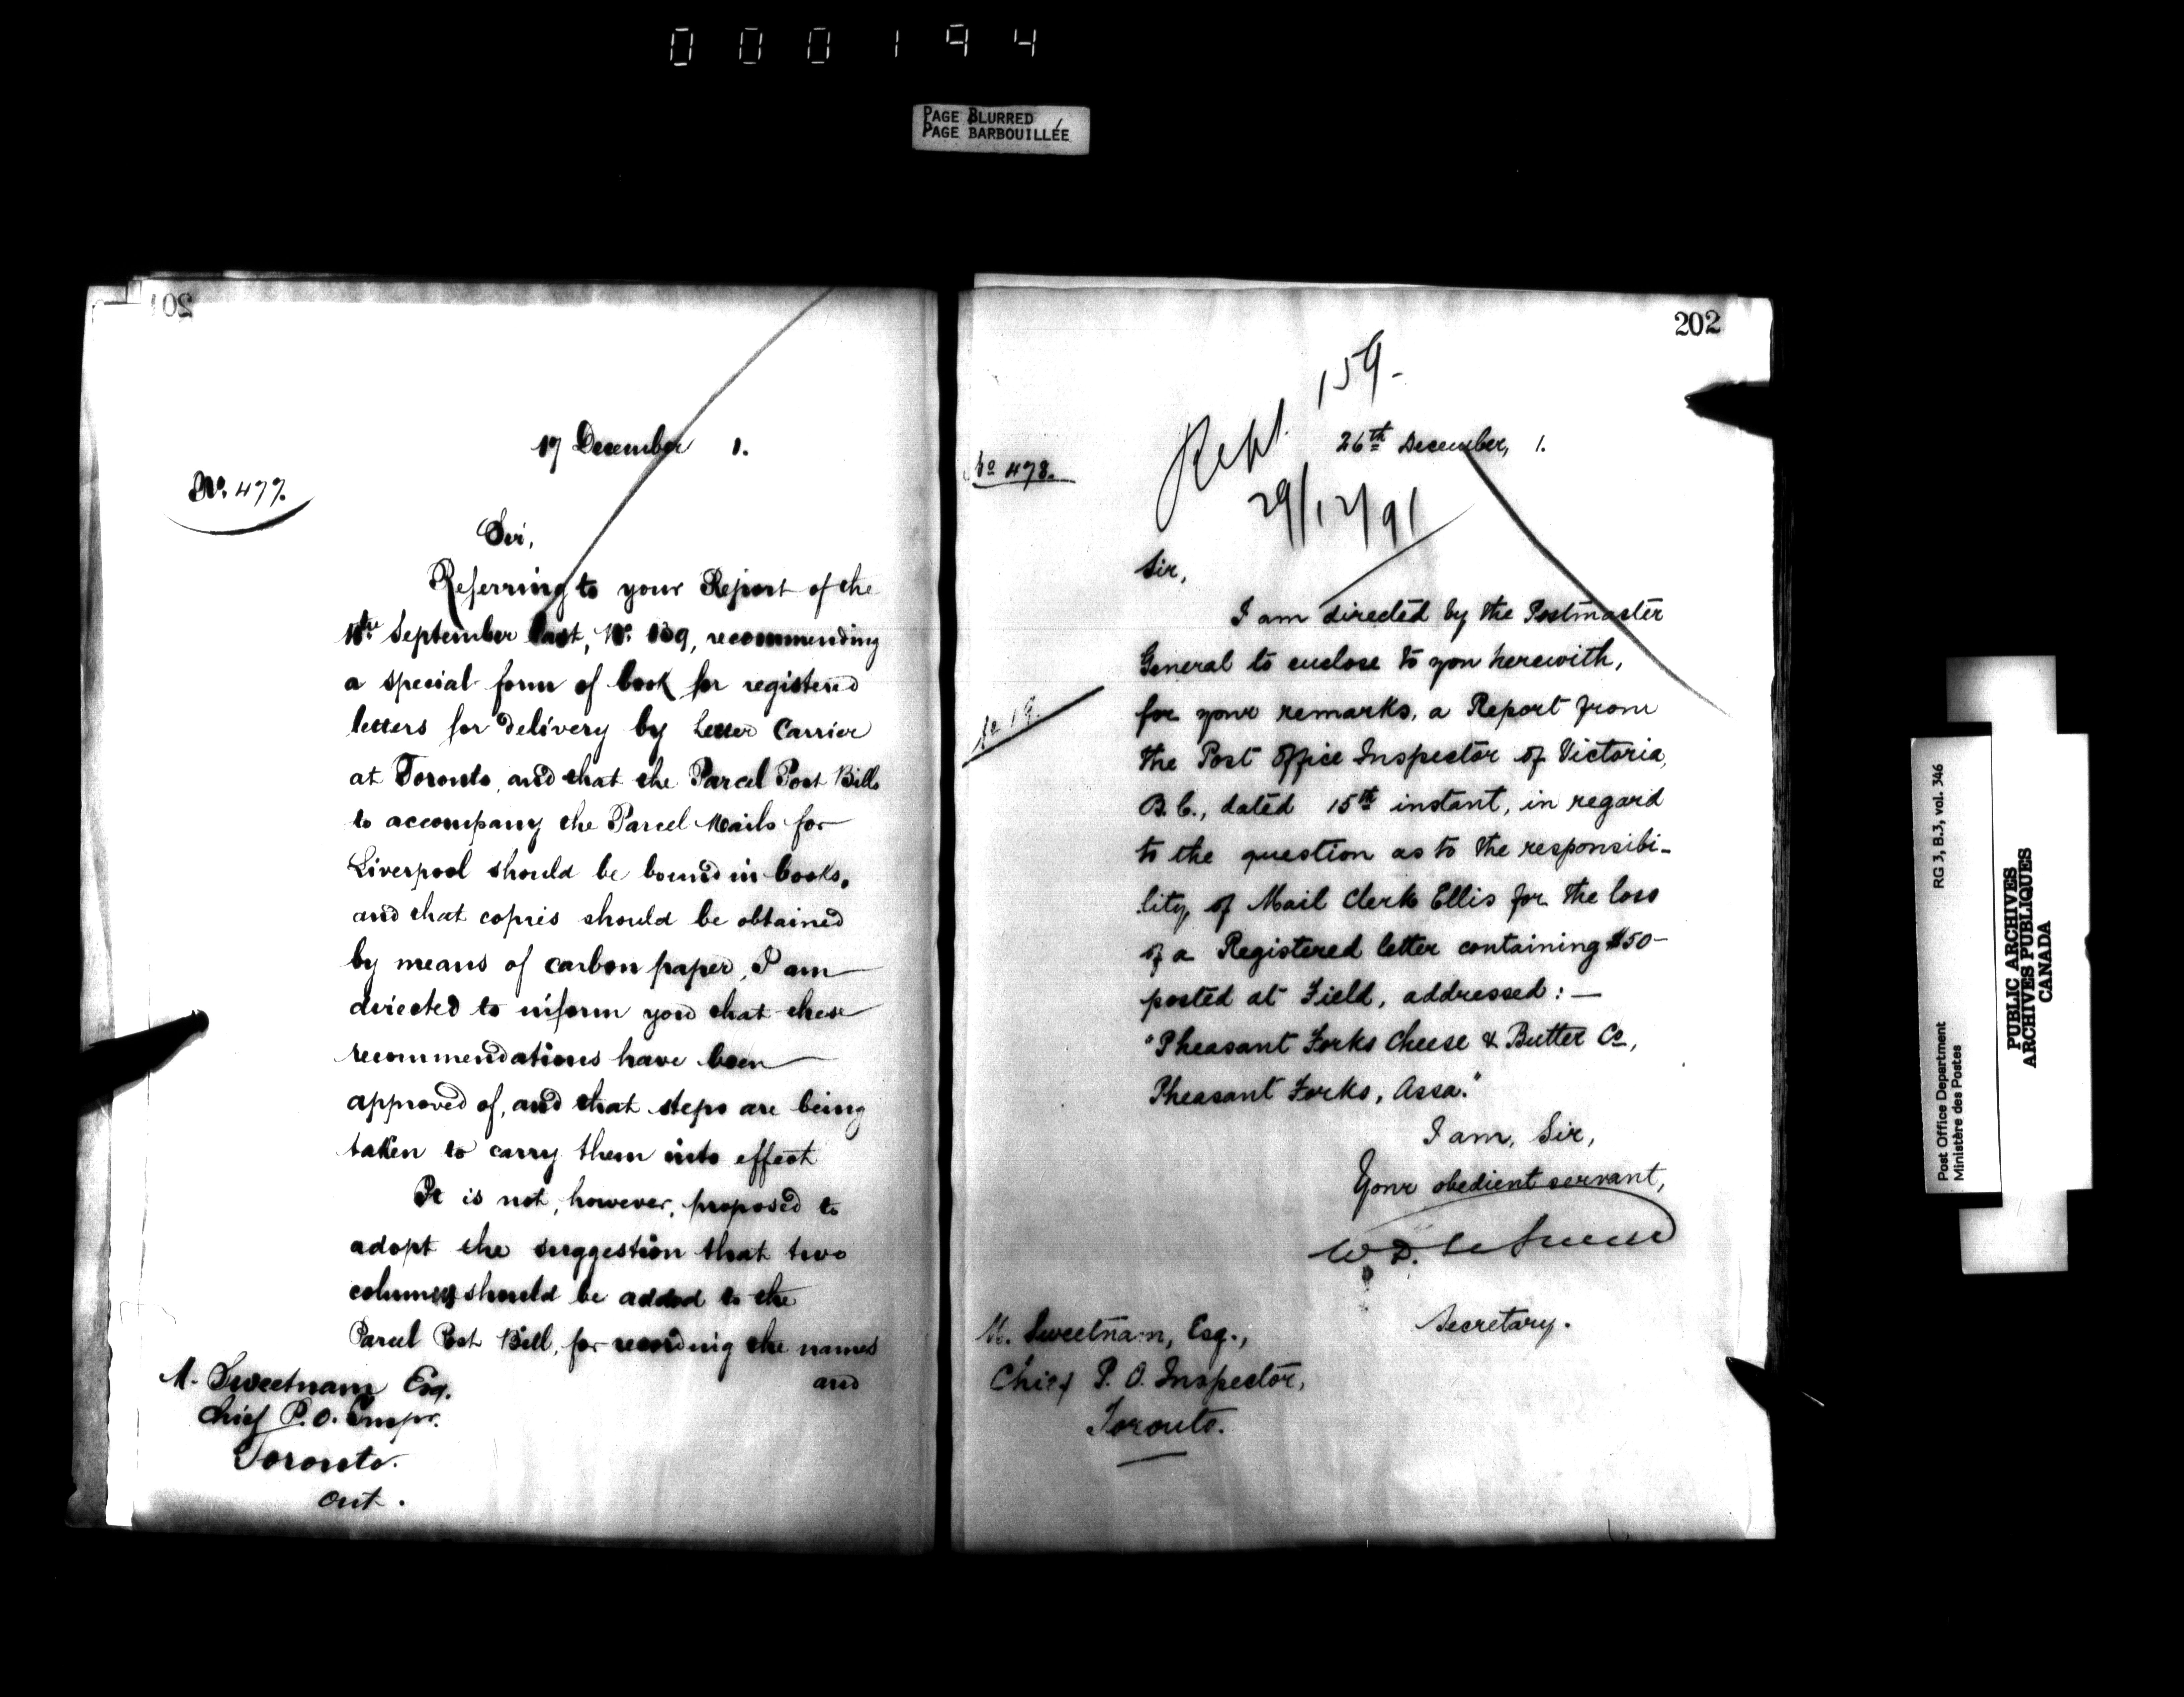 000194
PAGE BLURRED
PAGE BARBOUILLÉE
201
17 December 1.
No. 477.
Sir,
Referring to your Report of the
September last, No. 139, recommending
a special form of book for registered
letters for delivery by Letter Carrier
at Toronto, and that the Parcel Post Bills
to accompany the Parcel Mails for
Liverpool should be bound in books,
and that copies should be obtained
by means of carbon paper, I am
directed to inform you that these
recommendations have been
approved of, and that steps are being
taken to carry them into effect
It is not, however, proposed to
adopt the suggestion that two
columns should be added to the
Parcel Post Bill, for recording the names
and
M. Sweetnam Esq.
Chief P.O. Inspr.
Toronto.
Ont.
202
Rept. 159-
29/12/91
26th December, 1.
No 478.
Sir,
I am directed by the Postmaster
General to enclose to you herewith,
for your remarks, a Report from
the Post Office Inspector of Victoria,
B.C., dated 15th instant, in regard
to the question as to the responsibi-
lity of Mail Clerk Ellis for the loss
of a Registered letter containing $50-
posted at Field, addressed: —
"Pheasant Forks Cheese & Butter Co,
Pheasant Forks, Assa."
I am, Sir,
Your obedient servant,
W. D. LeSueur
Secretary.
M. Sweetnam, Esq.,
Chief P. O. Inspector,
Toronto.
Post Office Department
Ministère des Postes
RG 3, B.3, vol. 346
PUBLIC ARCHIVES
ARCHIVES PUBLIQUES
CANADA